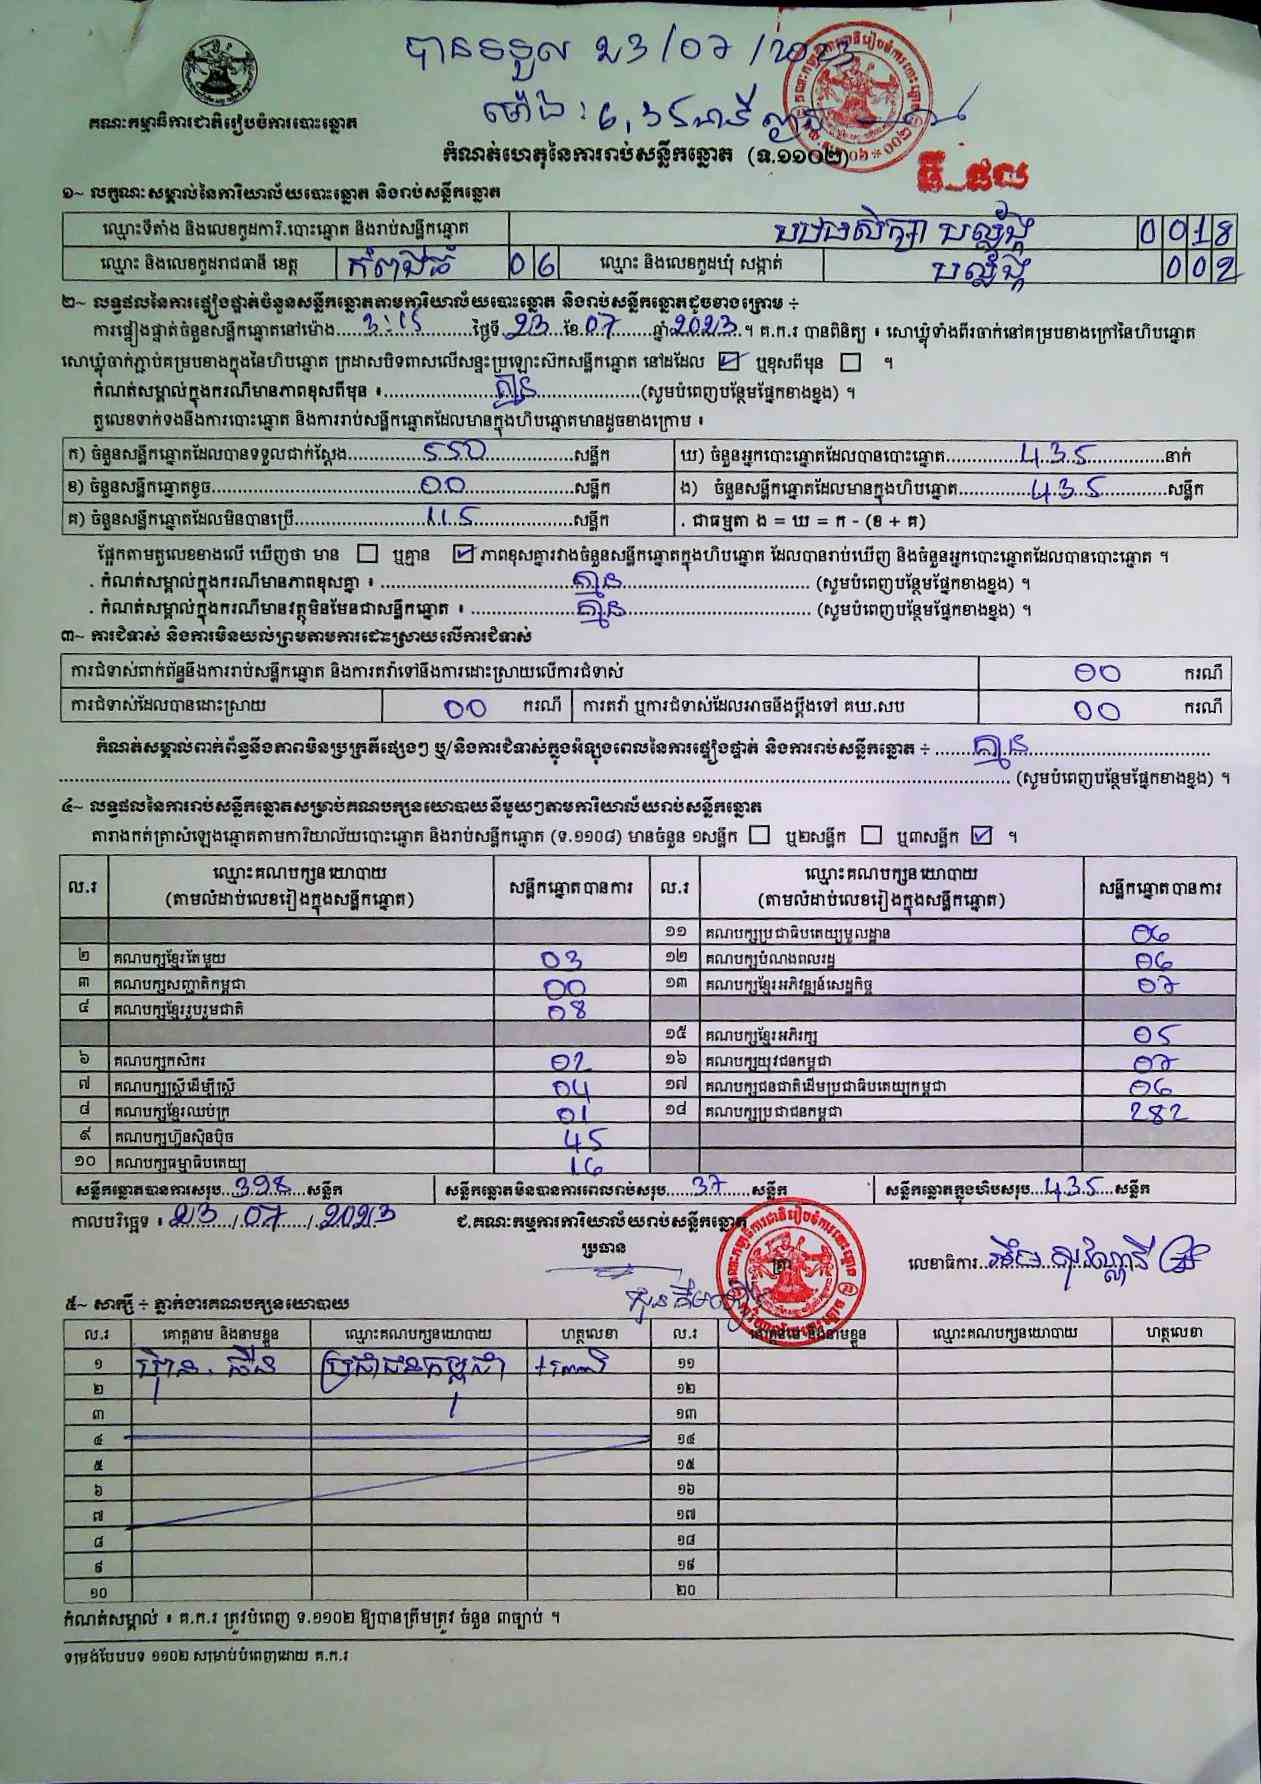 បានទទួល 23/07/2023
ម៉ោង: 6,35នាទី ល្ងាច
គណៈកម្មាធិការជាតិរៀបចំការបោះឆ្នោត
កំណត់ហេតុនៃការរាប់សន្លឹកឆ្នោត (ទ.១១០២)
ធី_ផល
១~ លក្ខណៈសម្គាល់នៃការិយាល័យបោះឆ្នោត និងរាប់សន្លឹកឆ្នោត
ឈ្មោះទីតាំង និងលេខកូដការិ.បោះឆ្នោត និងរាប់សន្លឹកឆ្នោត បឋមសិក្សា បល្ល័ង្គ 0018
ឈ្មោះ និងលេខកូដរាជធានី ខេត្ត កំពង់ធំ 06 ឈ្មោះ និងលេខកូដឃុំ សង្កាត់ បល្ល័ង្គ 002
២~ លទ្ធផលនៃការផ្ទៀងផ្ទាត់ចំនួនសន្លឹកឆ្នោតតាមការិយាល័យបោះឆ្នោត និងរាប់សន្លឹកឆ្នោតដូចខាងក្រោម ÷
ការផ្ទៀងផ្ទាត់ចំនួនសន្លឹកឆ្នោតនៅម៉ោង 3:15 ថ្ងៃទី 23 ខែ 07 ឆ្នាំ 2023 ។ គ.ក.រ បានពិនិត្យ ៖ សោឃ្លុំទាំងពីរចាក់នៅគម្របខាងក្រៅនៃហិបឆ្នោត
សោឃ្លុំចាក់ភ្ជាប់គម្របខាងក្នុងនៃហិបឆ្នោត ក្រដាសបិទពាសលើសន្ទះប្រឡោះស៊កសន្លឹកឆ្នោត នៅដដែល ☑ ឬខុសពីមុន ☐ ។
កំណត់សម្គាល់ក្នុងករណីមានភាពខុសពីមុន ៖ គ្មាន (សូមបំពេញបន្ថែមផ្នែកខាងខ្នង) ។
តួលេខទាក់ទងនឹងការបោះឆ្នោត និងការរាប់សន្លឹកឆ្នោតដែលមានក្នុងហិបឆ្នោតមានដូចខាងក្រោម ៖
ក) ចំនួនសន្លឹកឆ្នោតដែលបានទទួលជាក់ស្តែង 550 សន្លឹក ឃ) ចំនួនអ្នកបោះឆ្នោតដែលបានបោះឆ្នោត 435 នាក់
ខ) ចំនួនសន្លឹកឆ្នោតខូច 00 សន្លឹក ង) ចំនួនសន្លឹកឆ្នោតដែលមានក្នុងហិបឆ្នោត 435 សន្លឹក
គ) ចំនួនសន្លឹកឆ្នោតដែលមិនបានប្រើ 115 សន្លឹក . ជាធម្មតា ង = ឃ = ក - (ខ + គ)
ផ្អែកតាមតួលេខខាងលើ ឃើញថា មាន ☐ ឬគ្មាន ☑ ភាពខុសគ្នារវាងចំនួនសន្លឹកឆ្នោតក្នុងហិបឆ្នោត ដែលបានរាប់ឃើញ និងចំនួនអ្នកបោះឆ្នោតដែលបានបោះឆ្នោត ។
. កំណត់សម្គាល់ក្នុងករណីមានភាពខុសគ្នា ៖ គ្មាន (សូមបំពេញបន្ថែមផ្នែកខាងខ្នង) ។
. កំណត់សម្គាល់ក្នុងករណីមានវត្ថុមិនមែនជាសន្លឹកឆ្នោត ៖ គ្មាន (សូមបំពេញបន្ថែមផ្នែកខាងខ្នង) ។
៣~ ការជំទាស់ និងការមិនយល់ព្រមតាមការដោះស្រាយលើការជំទាស់
ការជំទាស់ពាក់ព័ន្ធនឹងការរាប់សន្លឹកឆ្នោត និងការតវ៉ាទៅនឹងការដោះស្រាយលើការជំទាស់ 00 ករណី
ការជំទាស់ដែលបានដោះស្រាយ 00 ករណី ការតវ៉ា ឬការជំទាស់ដែលអាចនឹងប្តឹងទៅ គឃ.សប 00 ករណី
កំណត់សម្គាល់ពាក់ព័ន្ធនឹងភាពមិនប្រក្រតីផ្សេងៗ ឬ/និងការជំទាស់ក្នុងអំឡុងពេលនៃការផ្ទៀងផ្ទាត់ និងការរាប់សន្លឹកឆ្នោត ÷ គ្មាន
(សូមបំពេញបន្ថែមផ្នែកខាងខ្នង) ។
៤~ លទ្ធផលនៃការរាប់សន្លឹកឆ្នោតសម្រាប់គណបក្សនយោបាយនីមួយៗតាមការិយាល័យរាប់សន្លឹកឆ្នោត
តារាងកត់ត្រាសំឡេងឆ្នោតតាមការិយាល័យបោះឆ្នោត និងរាប់សន្លឹកឆ្នោត (ទ.១១០៨) មានចំនួន ១សន្លឹក ☐ ឬ២សន្លឹក ☐ ឬ៣សន្លឹក ☑ ។
ល.រ ឈ្មោះគណបក្សនយោបាយ (តាមលំដាប់លេខរៀងក្នុងសន្លឹកឆ្នោត) សន្លឹកឆ្នោតបានការ ល.រ ឈ្មោះគណបក្សនយោបាយ (តាមលំដាប់លេខរៀងក្នុងសន្លឹកឆ្នោត) សន្លឹកឆ្នោតបានការ
១១ គណបក្សប្រជាធិបតេយ្យមូលដ្ឋាន 06
២ គណបក្សខ្មែរតែមួយ 03 ១២ គណបក្សបំណងពលរដ្ឋ 06
៣ គណបក្សសញ្ជាតិកម្ពុជា 00 ១៣ គណបក្សខ្មែរអភិវឌ្ឍន៍សេដ្ឋកិច្ច 07
៤ គណបក្សខ្មែររួបរួមជាតិ 08
១៥ គណបក្សខ្មែរអភិរក្ស 05
៦ គណបក្សកសិករ 02 ១៦ គណបក្សយុវជនកម្ពុជា 07
៧ គណបក្សស្ត្រីដើម្បីស្ត្រី 04 ១៧ គណបក្សជនជាតិដើមប្រជាធិបតេយ្យកម្ពុជា 06
៨ គណបក្សខ្មែរឈប់ក្រ 01 ១៨ គណបក្សប្រជាជនកម្ពុជា 282
៩ គណបក្សហ៊្វុនស៊ិនប៉ិច 45
១០ គណបក្សធម្មាធិបតេយ្យ 16
សន្លឹកឆ្នោតបានការសរុប 398 សន្លឹក សន្លឹកឆ្នោតមិនបានការពេលរាប់សរុប 37 សន្លឹក សន្លឹកឆ្នោតក្នុងហិបសរុប 435 សន្លឹក
កាលបរិច្ឆេទ ៖ 23/07/2023 ជ.គណៈកម្មការការិយាល័យរាប់សន្លឹកឆ្នោត
ប្រធាន ត្រា លេខាធិការ
៥~ សាក្សី ÷ ភ្នាក់ងារគណបក្សនយោបាយ
ល.រ គោត្តនាម និងនាមខ្លួន ឈ្មោះគណបក្សនយោបាយ ហត្ថលេខា ល.រ គោត្តនាម និងនាមខ្លួន ឈ្មោះគណបក្សនយោបាយ ហត្ថលេខា
១ ប្រជាជនកម្ពុជា ១១
២ ១២
៣ ១៣
៤ ១៤
៥ ១៥
៦ ១៦
៧ ១៧
៨ ១៨
៩ ១៩
១០ ២០
កំណត់សម្គាល់ ៖ គ.ក.រ ត្រូវបំពេញ ទ.១១០២ ឱ្យបានត្រឹមត្រូវ ចំនួន ៣ច្បាប់ ។
ទម្រង់បែបបទ ១១០២ សម្រាប់បំពេញដោយ គ.ក.រ